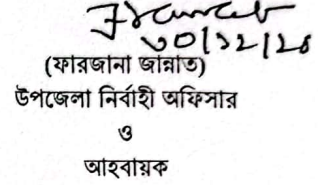 ৩০/১২/২৪
(ফারজানা জান্নাত)
উপজেলা নির্বাহী অফিসার
ও
আহবায়ক